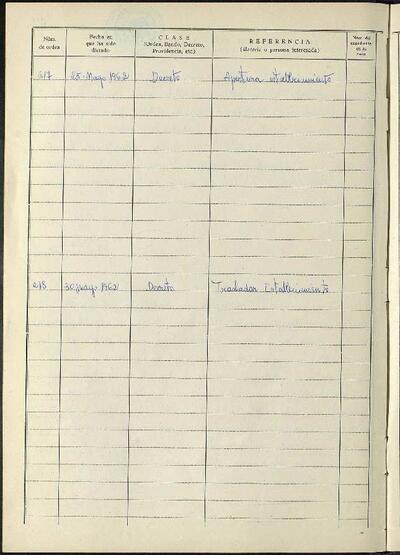 Núm. de orden
Fecha en que ha sido dictado
CLASE
(Orden, Bando, Decreto, Providencia, etc.)
REFERENCIA
(Materia o persona interesada)
217 25-Mayo 1962 Decreto Apertura establecimiento
218 30 Mayo 1962 Decreto Trasladar Establecimiento